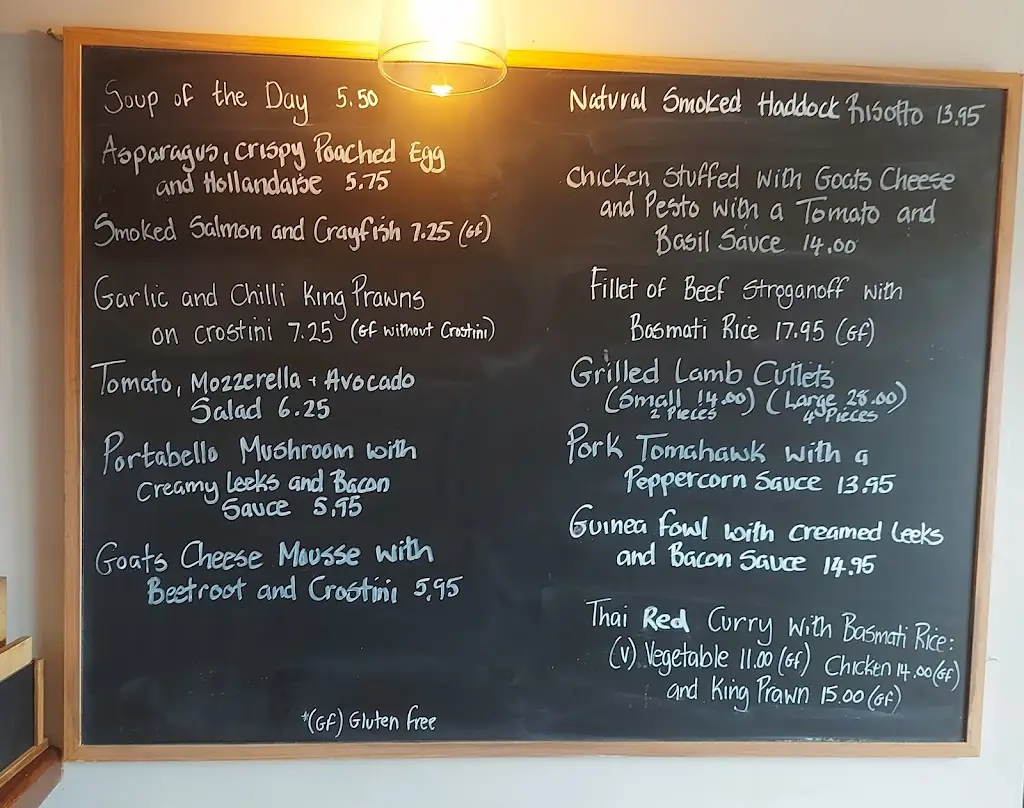 Soup of the Day 5.50
Asparagus, crispy Poached Egg
and Hollandaise 5.75
Smoked Salmon and Crayfish 7.25 (GF)
Garlic and Chilli King Prawns
on crostini 7.25 (GF without Crostini)
Tomato, Mozzerella + Avocado
Salad 6.25
Portabello Mushroom with
Creamy Leeks and Bacon
Sauce 5.95
Goats Cheese Mousse with
Beetroot and Crostini 5,95
*(GF) Gluten Free
Natural Smoked Haddock Risotto 13.95
Chicken Stuffed with Goats Cheese
and Pesto with a Tomato and
Basil Sauce 14.00
Fillet of Beef Stroganoff with
Basmati Rice 17.95 (GF)
Grilled Lamb Cutlets
(Small 14.00) (Large 28.00)
2 Pieces 4 Pieces
Pork Tomahawk with a
Peppercorn Sauce 13.95
Guinea Fowl with creamed Leeks
and Bacon Sauce 14.95
Thai Red Curry with Basmati Rice:
(V) Vegetable 11.00 (GF) Chicken 14.00 (GF)
and King Prawn 15.00 (GF)